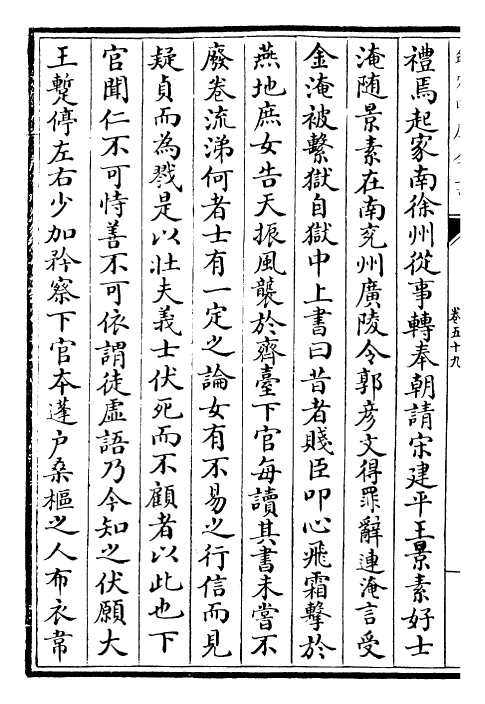 禮焉起家南徐州從事轉奉朝請宋建平王景素好士
淹随景素在南兖州廣陵令郭彦文得罪辭連淹言受
金淹被繫獄自獄中上書曰昔者賤臣叩心飛霜擊於
燕地庶女告天振風襲於齊臺下官每讀其書未嘗不
廢卷流涕何者士有一定之論女有不易之行信而見
疑貞而為戮是以壯夫義士伏死而不顧者以此也下
官聞仁不可恃善不可依謂徒虛語乃今知之伏願大
王蹔停左右少加矜察下官本蓬户桑樞之人布衣韋
卷五十九